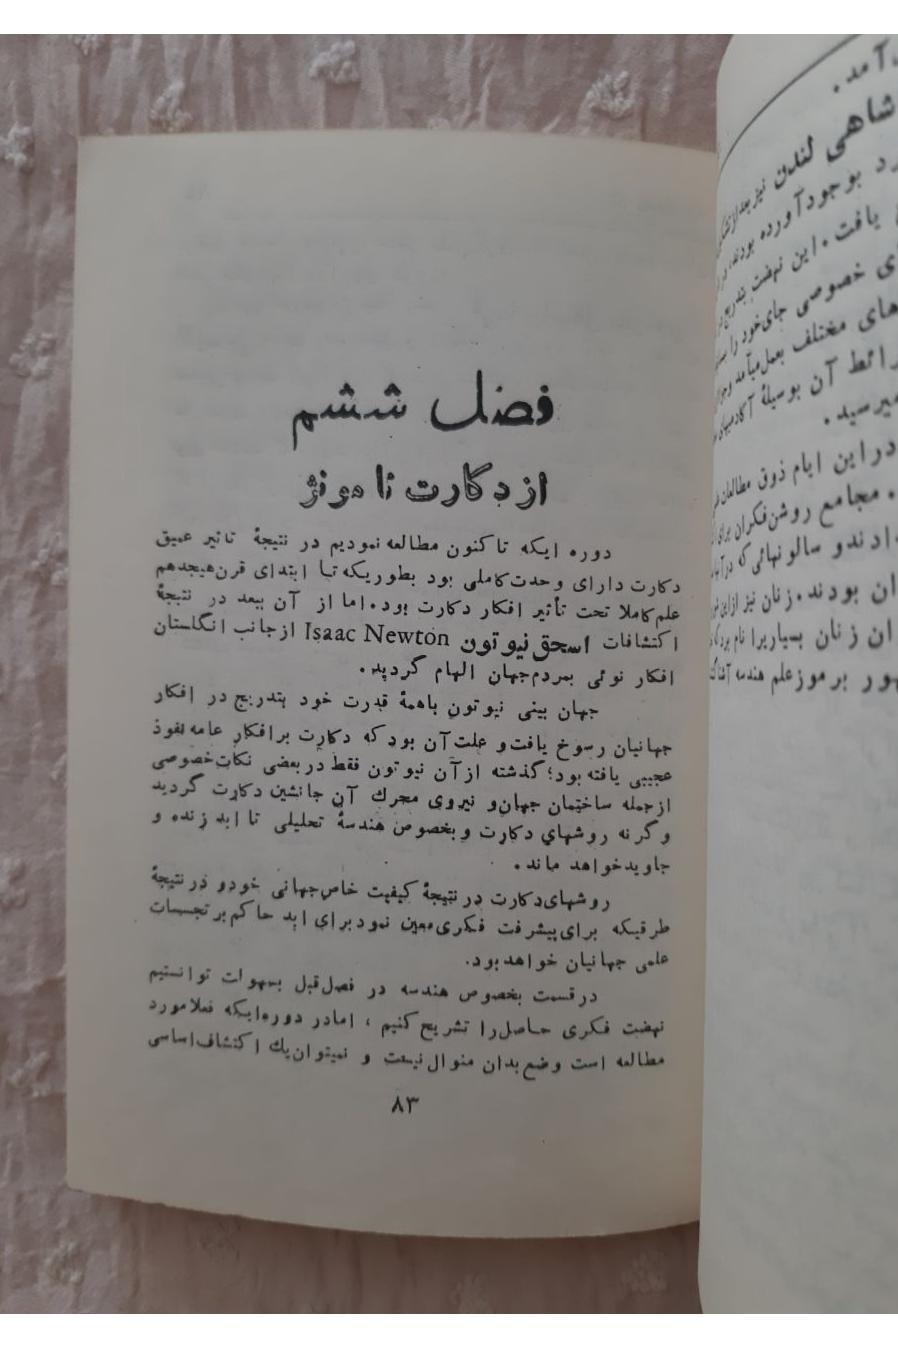 فصل ششم
از دکارت تا مونژ
دوره ایکه تا کنون مطالعه نمودیم در نتیجهٔ تاثیر عمیق
دکارت دارای وحدت کاملی بود بطوریکه تا ابتدای قرن هیجدهم
علم کاملا تحت تأثیر افکار دکارت بود. اما از آن ببعد در نتیجهٔ
اکتشافات اسحق نیوتون Isaac Newton از جانب انگلستان
افکار نوئی بمردم جهان الهام گردید.
جهان بینی نیوتون باهمهٔ قدرت خود بتدریج در افکار
جهانیان رسوخ یافت و علت آن بود که دکارت بر افکار عامه نفوذ
عجیبی یافته بود؛ گذشته از آن نیوتون فقط در بعضی نکات خصوصی
از جمله ساختمان جهان و نیروی محرك آن جانشین دکارت گردید
و گرنه روشهای دکارت و بخصوص هندسهٔ تحلیلی تا ابد زنده و
جاوید خواهد ماند.
روشهای دکارت در نتیجهٔ کیفیت خاص جهانی خود و در نتیجهٔ
طرقیکه برای پیشرفت فکری معین نمود برای ابد حاکم بر تجسسات
علمی جهانیان خواهد بود.
در قسمت بخصوص هندسه در فصل قبل بسهوات توانستیم
نهضت فکری حاصل را تشریح کنیم ، اما در دوره ایکه فعلا مورد
مطالعه است وضع بدان منوال نیست و نمیتوان یك اکتشاف اساسی
۸۳
آمد.
شاهی لندن نیز بعد از
بوجود آورده بودند،
یافت. این نهضت بتدریج در
خصوصی جای خود را
های مختلف بعمل میآمد و
آن بوسیلهٔ آکادمیهای
میرسید.
در این ایام ذوق مطالعات
مجامع روشن فکران برای
دادند و سالونهائی که در
بودند. زنان نیز از این
زنان بسیاریرا نام برد که
بر موز علم هندسه آشنا